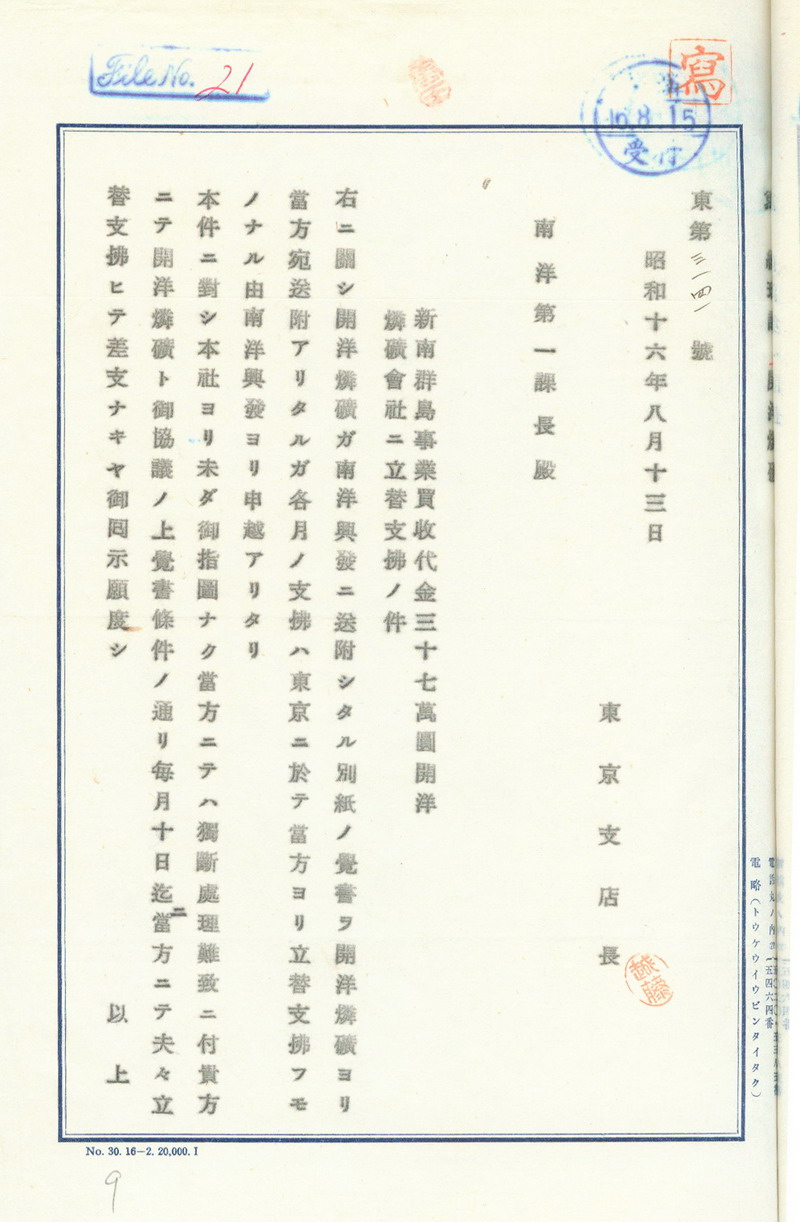 File No. 21
寫
16.8.15
受付
東第三一四一號
昭和十六年八月十三日
東京支店長
南洋第一課長殿
新南群島事業買收代金三十七萬圓開洋
燐礦會社ニ立替支拂ノ件
右ニ關シ開洋燐礦ガ南洋興發ニ送附シタル別紙ノ覺書ヲ開洋燐礦ヨリ
當方宛送附アリタルガ各月ノ支拂ハ東京ニ於テ當方ヨリ立替支拂フモ
ノナル由南洋興發ヨリ申越アリタリ
本件ニ對シ本社ヨリ未ダ御指圖ナク當方ニテハ獨斷處理難致ニ付貴方
ニテ開洋燐礦ト御協議ノ上覺書條件ノ通リ每月十日迄ニ當方ニテ夫々立
替支拂ヒテ差支ナキヤ御囘示願度シ
以上
電略(トウケウイウビンタイタク)
No. 30. 16—2. 20,000. I
9